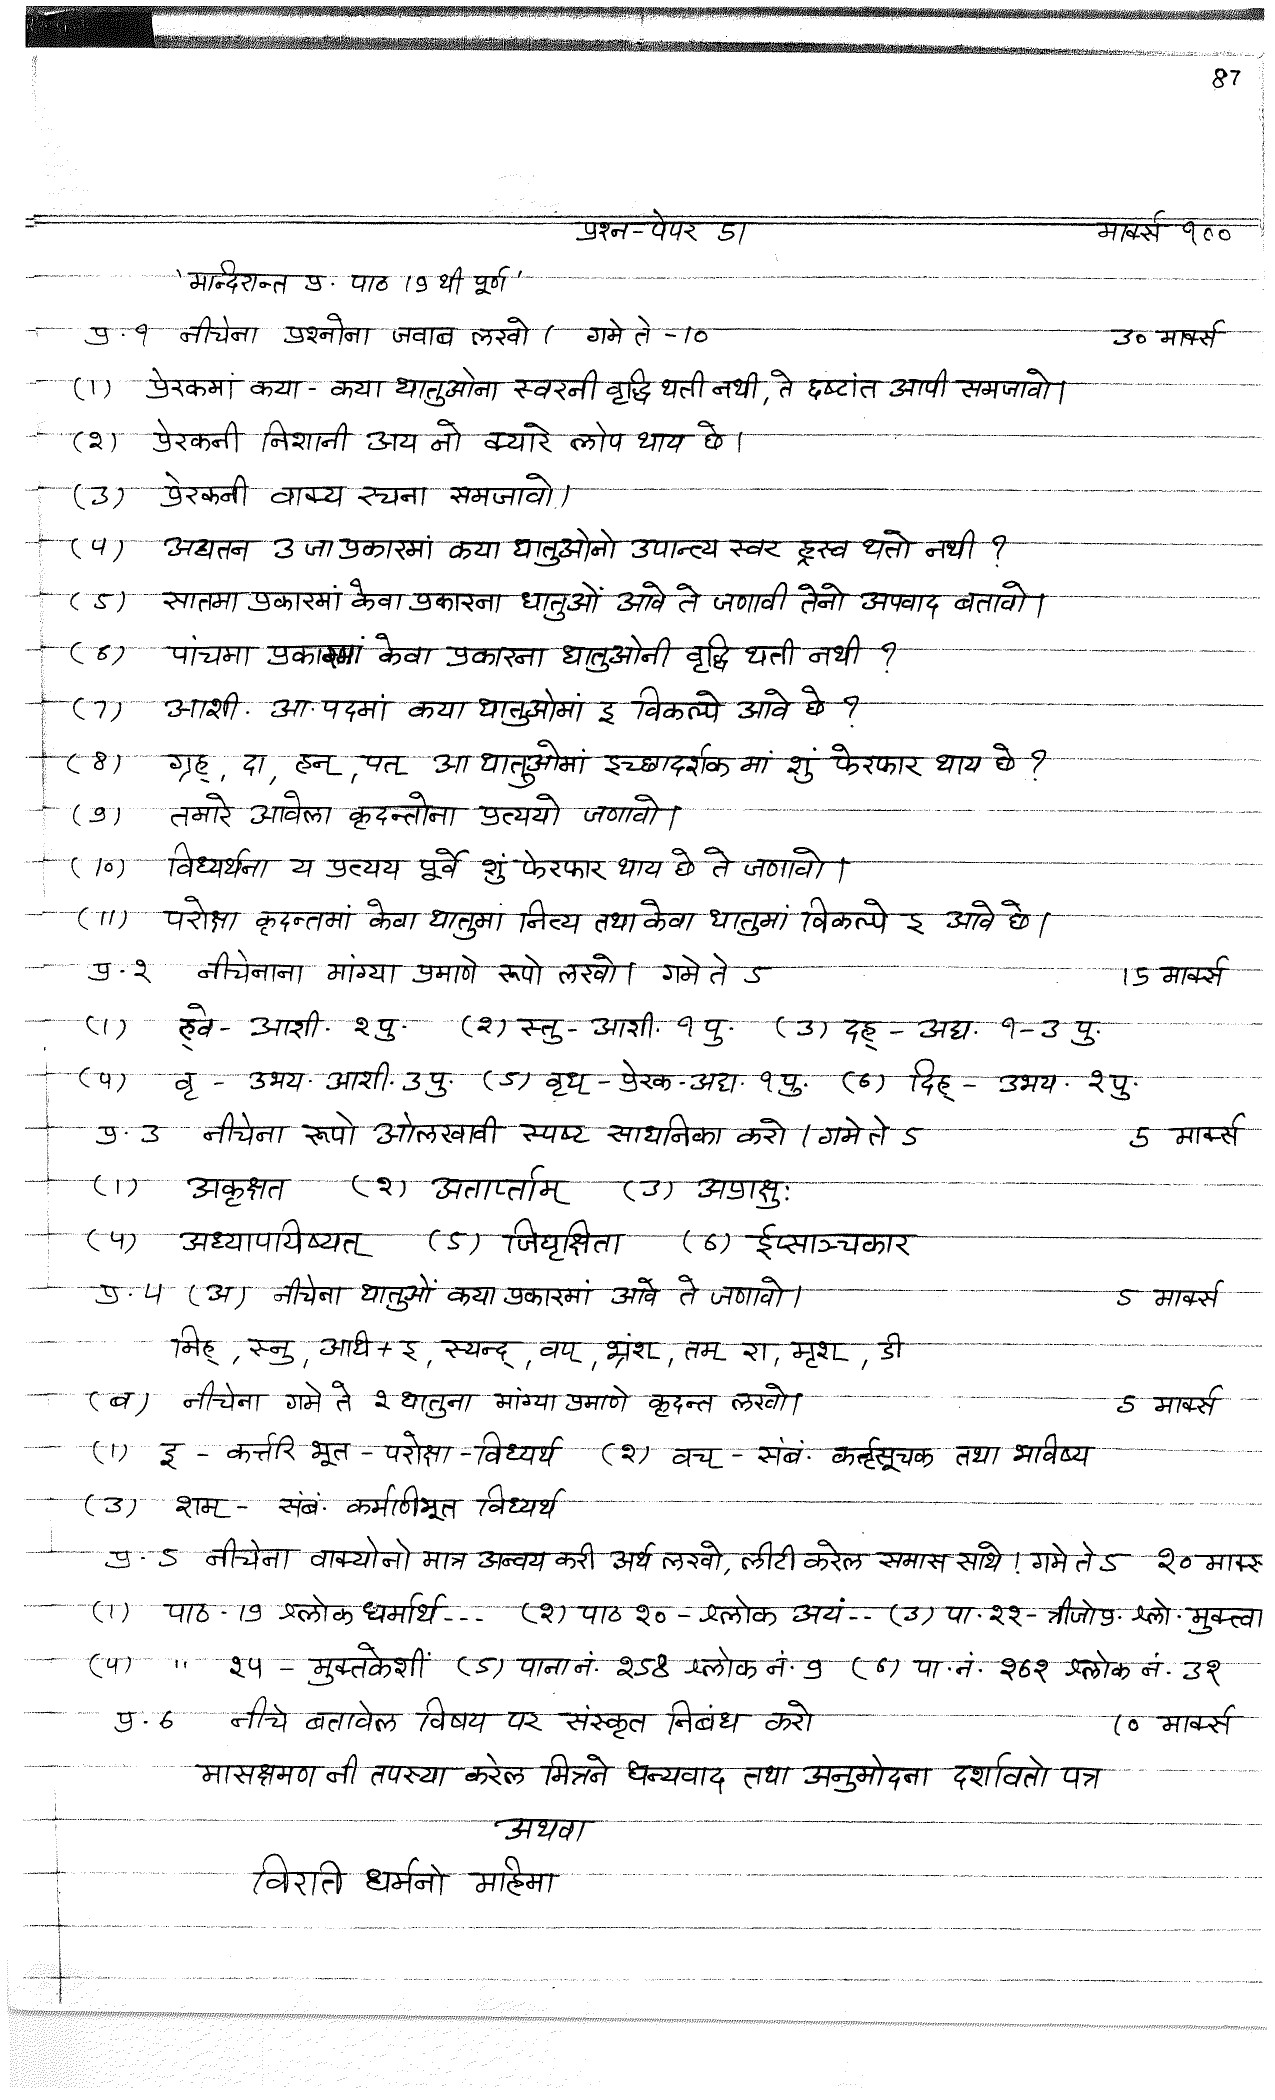 87
प्रश्न-पेपर 51 मार्क्स १००
'मान्दिरान्त प्र. पाठ 19 थी पूर्ण'
प्र.१ नीचेना प्रश्नोना जवाब लखो। गमे ते -10 30 मार्क्स
(1) प्रेरकमां कया-कया धातुओना स्वरनी वृद्धि थती नथी, ते द्दष्टांत आपी समजावो।
(२) प्रेरकनी निशानी अय नो क्यारे लोप थाय छे।
(3) प्रेरकनी वाक्य रचना समजावो।
(4) अद्यतन 3 जा प्रकारमां कया धातुओनो उपान्त्य स्वर ह्रस्व थतो नथी ?
(5) सातमा प्रकारमां केवा प्रकारना धातुओं आवे ते जणावी तेनो अपवाद बतावो।
(6) पांचमा प्रकारमां केवा प्रकारना धातुओनी वृद्धि थती नथी ?
(7) आशी. आ.पदमां कया धातुओमां इ विकल्पे आवे छे ?
(8) ग्रह्, दा, हन्, पत् आ धातुओमां इच्छादर्शक मां शुं फेरफार थाय छे ?
(9) तमारे आवेला कृदन्तोना प्रत्ययो जणावो।
(10) विध्यर्थना य प्रत्यय पूर्वे शुं फेरफार थाय छे ते जणावो।
(11) परोक्षा कृदन्तमां केवा धातुमां नित्य तथा केवा धातुमां विकल्पे इ आवे छे।
प्र.२ नीचेनाना मांग्या प्रमाणे रूपो लखो। गमे ते 5 15 मार्क्स
(1) ह्वे - आशी. २ पु. (२) स्तु - आशी. १ पु. (3) दह् - अद्य. १-3 पु.
(4) वृ - उभय. आशी. 3 पु. (5) वृध् - प्रेरक-अद्य. १ पु. (6) दिह् - उभय. २ पु.
प्र.3 नीचेना रूपो ओलखावी स्पष्ट साधनिका करो। गमे ते 5 5 मार्क्स
(1) अकृक्षत (२) अतार्प्ताम् (3) अप्राक्षुः
(4) अध्यापयिष्यत् (5) जिघृक्षिता (6) ईप्साञ्चकार
प्र.4 (अ) नीचेना धातुओं कया प्रकारमां आवे ते जणावो। 5 मार्क्स
मिह्, स्नु, अधि+इ, स्यन्द्, वप्, भ्रंश्, तम् रा, मृश्, डी
(ब) नीचेना गमे ते २ धातुना मांग्या प्रमाणे कृदन्त लखो। 5 मार्क्स
(1) इ - कर्त्तरि भूत - परोक्षा - विध्यर्थ (२) वच् - संबं. कर्तृसूचक तथा भविष्य
(3) शम् - संबं. कर्मणिभूत विध्यर्थ
प्र.5 नीचेना वाक्योनो मात्र अन्वय करी अर्थ लखो, लीटी करेल समास साथे। गमे ते 5 २० मार्क्स
(1) पाठ-19 श्लोक धर्मार्थ--- (२) पाठ २० - श्लोक अयं-- (3) पा.२२ - त्रीजो प्र. श्लो. मुक्त्वा
(4) " २4 - मुक्तकेशीं (5) पाना नं. २58 श्लोक नं. 9 (6) पा.नं. २6२ श्लोक नं. 3२
प्र.6 नीचे बतावेल विषय पर संस्कृत निबंध करो 10 मार्क्स
मासक्षमण नी तपस्या करेल मित्रने धन्यवाद तथा अनुमोदना दर्शावतो पत्र
अथवा
विरति धर्मनो महिमा